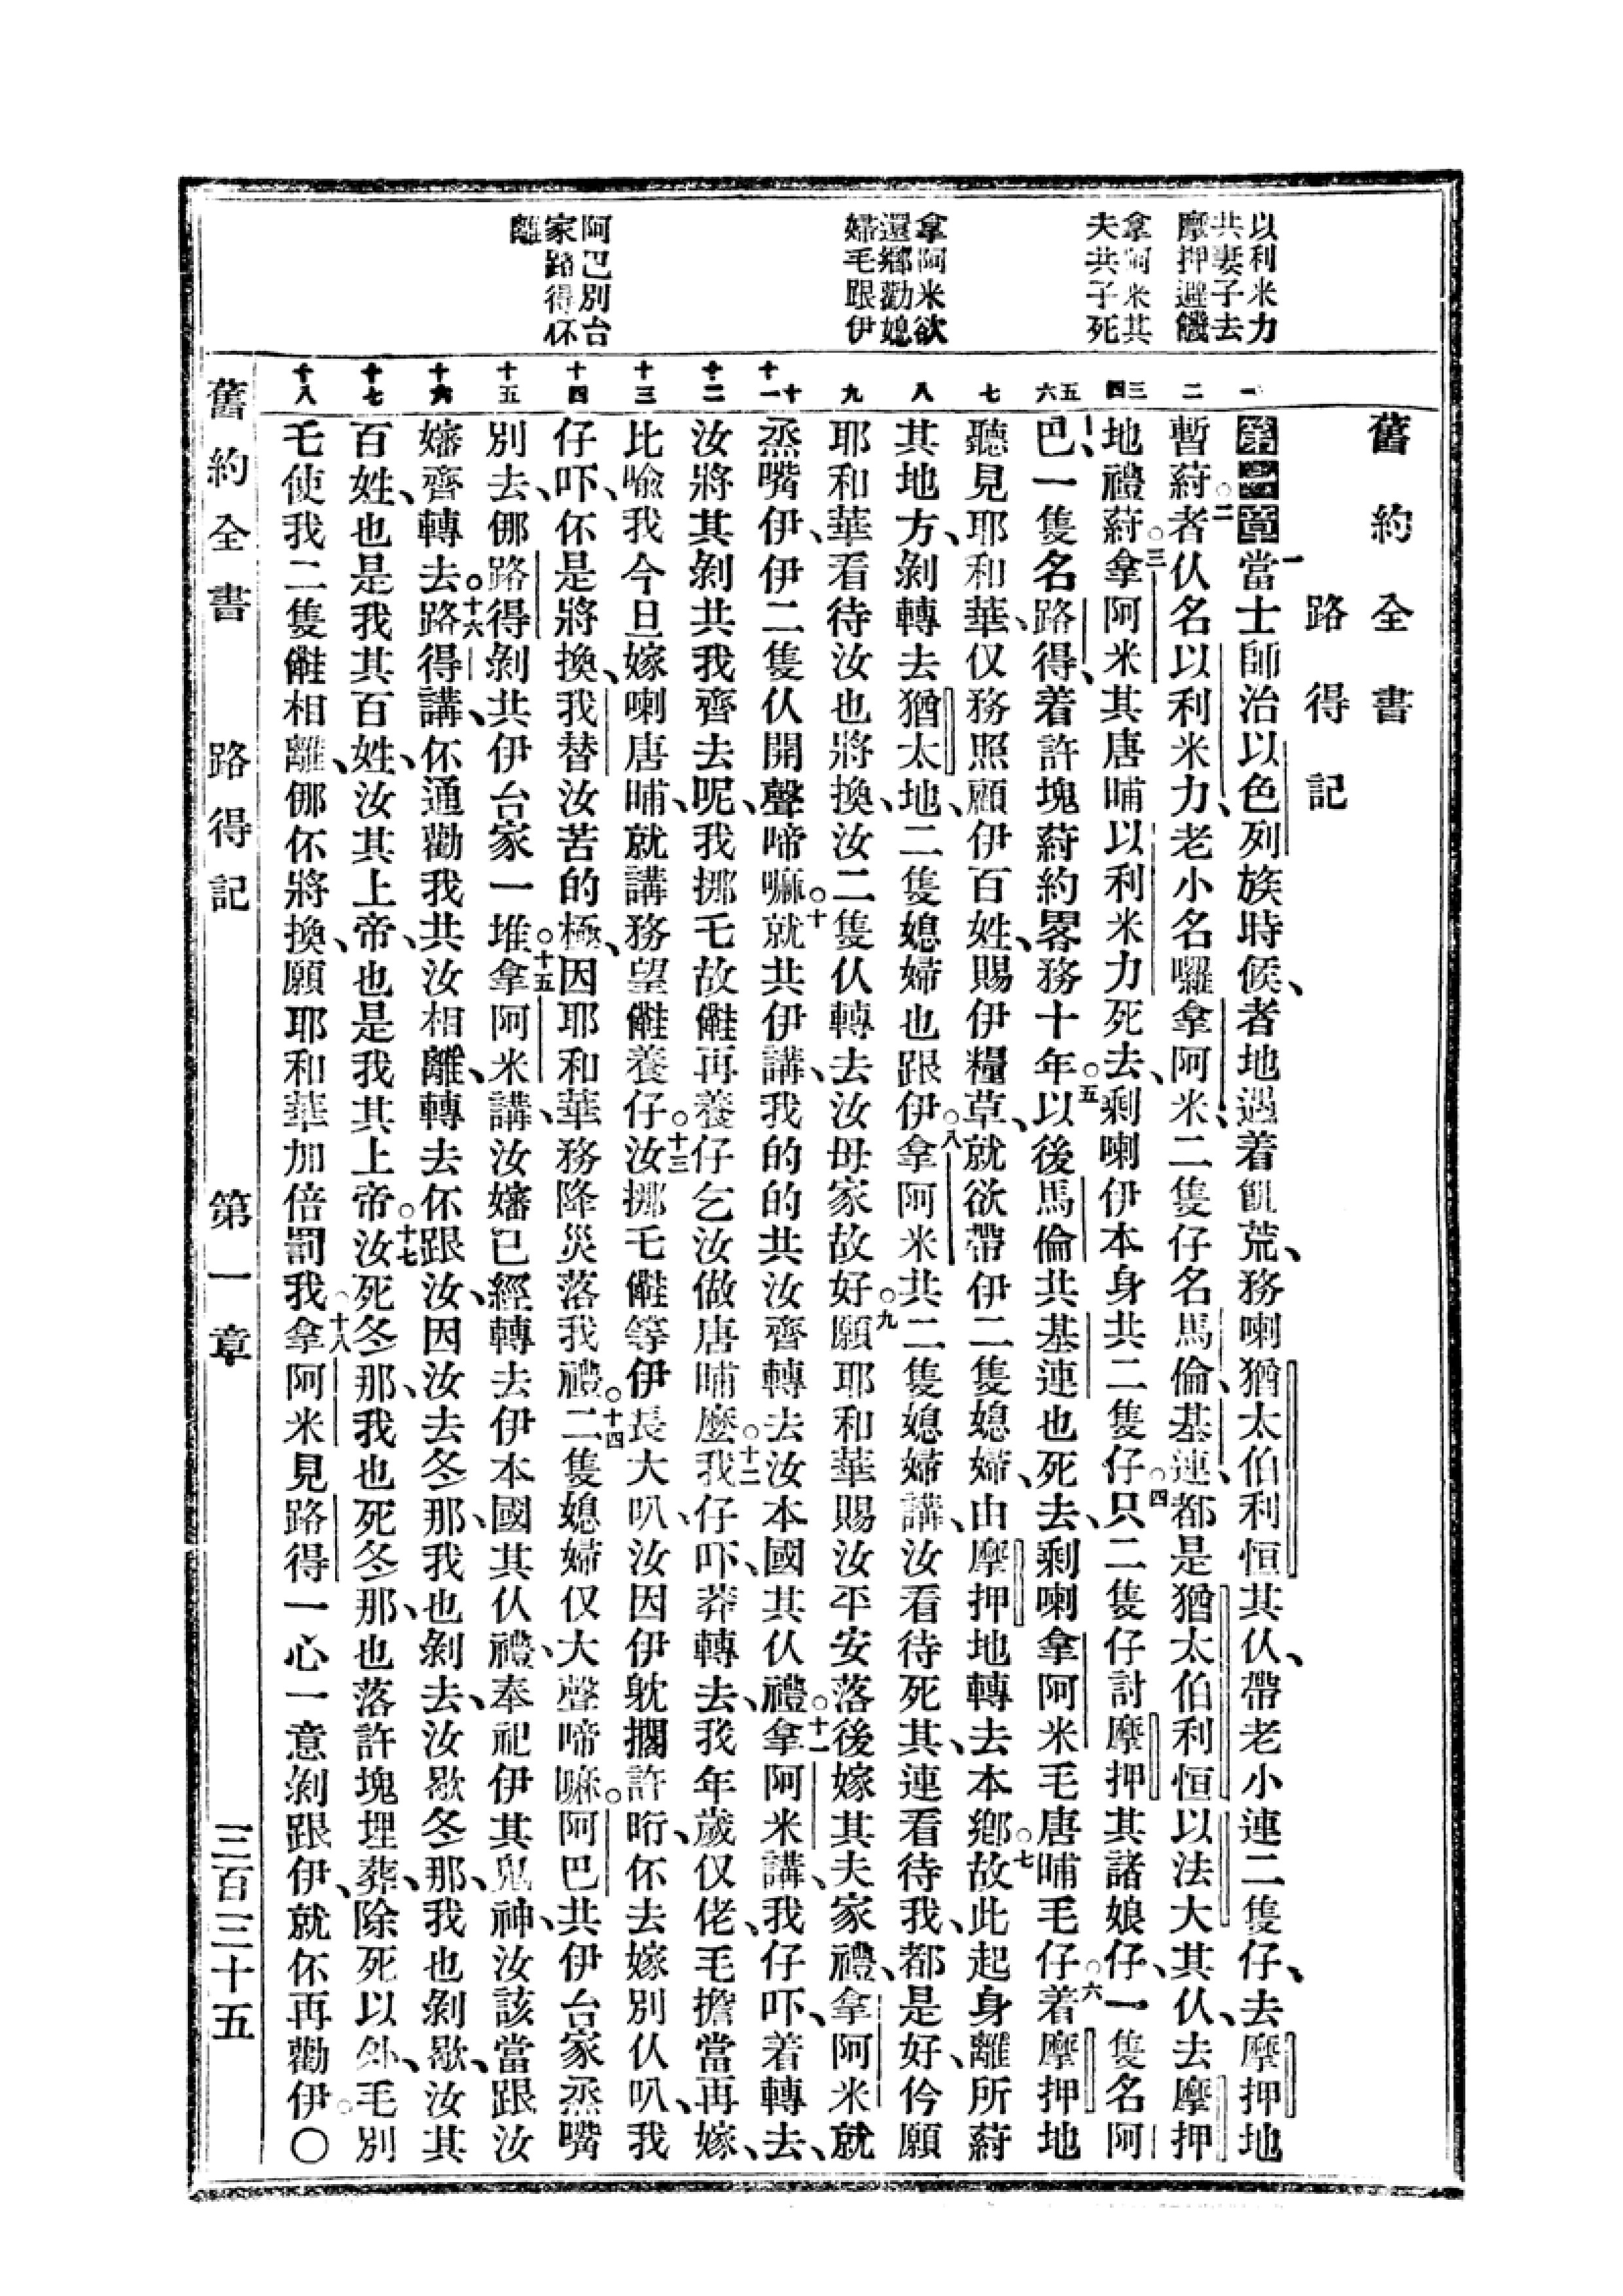 以利米力
共妻子去
摩押避饑
拿阿米其
夫共子死
拿阿米欲
還鄉勸媳
婦毛跟伊
阿巴別台
家路得伓
離
舊約全書
路得記
第一章 一當士師治以色列族時候、者地遇着飢荒、務喇猶太伯利恒其仈、帶老小連二隻仔、去摩押地
暫葤。二者仈名以利米力、老小名囉拿阿米、二隻仔名馬倫、基連、都是猶太伯利恒以法大其仈、去摩押
地禮葤。三拿阿米其唐晡以利米力死去、剩喇伊本身共二隻仔。四只二隻仔討摩押其諸娘仔、一隻名阿
巴、一隻名路得、着許塊葤約畧務十年。五以後馬倫共基連也死去、剩喇拿阿米毛唐晡毛仔。六着摩押地
聽見耶和華、仅務照顧伊百姓、賜伊糧草、就欲帶伊二隻媳婦、由摩押地轉去本鄉。七故此起身離所葤
其地方、剝轉去猶太地、二隻媳婦也跟伊。八拿阿米共二隻媳婦講、汝看待死其、連看待我、都是好、仱願
耶和華看待汝也將換、汝二隻仈轉去汝母家故好。九願耶和華賜汝平安落後嫁其夫家禮、拿阿米就
烝嘴伊、伊二隻仈開聲啼嘛。十就共伊講、我的的共汝齊轉去汝本國其仈禮。十一拿阿米講、我仔吓、着轉去、
汝將其剝共我齊去呢、我挪乇故再養仔乞汝做唐晡麼。十二我仔吓、莽轉去、我年歲仅佬、毛擔當再嫁、
比喻我今旦嫁喇唐晡、就講務望養仔。十三汝挪乇等伊長大叭、汝因伊躭擱許昈、伓去嫁別仈叭、我
仔吓、伓是將換、我替汝苦的極、因耶和華務降災落我禮。十四二隻媳婦仅大聲啼嘛。阿巴共伊台家烝嘴
別去、㑚路得剝共伊台家一堆。十五拿阿米講、汝嬸已經轉去伊本國其仈禮、奉祀伊其鬼神、汝該當跟汝
嬸齊轉去。十六路得講、伓通勸我共汝相離、轉去伓跟汝、因汝去冬那、我也剝去、汝歇冬那、我也剝歇、汝其
百姓、也是我其百姓、汝其上帝、也是我其上帝。十七汝死冬那、我也死冬那、也落許塊埋葬、除死以外、毛別
乇使我二隻相離、㑚伓將換、願耶和華加倍罰我。十八拿阿米見路得一心一意剝跟伊、就伓再勸伊。○
舊約全書 路得記 第一章 三百三十五